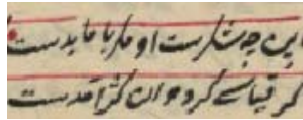 این چه شکرست او مارا با ما بدست
گر قیاسے کرد و ان کژ آمدست